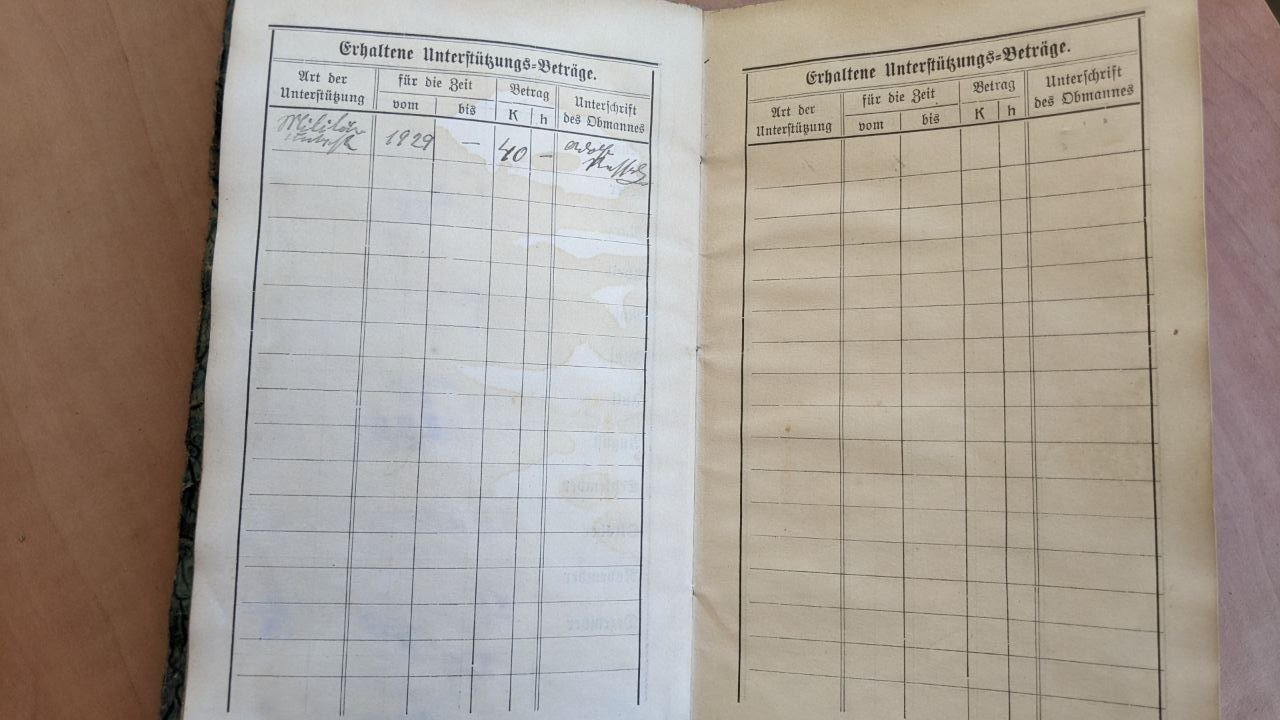 Erhaltene Unterstützungs-Beträge.
Art der Unterstützung
für die Zeit
vom
bis
Betrag
K
h
Unterschrift des Obmannes
Militär
1929 — 40 —
Adolf
Erhaltene Unterstützungs-Beträge.
Art der Unterstützung
für die Zeit
vom
bis
Betrag
K
h
Unterschrift des Obmannes